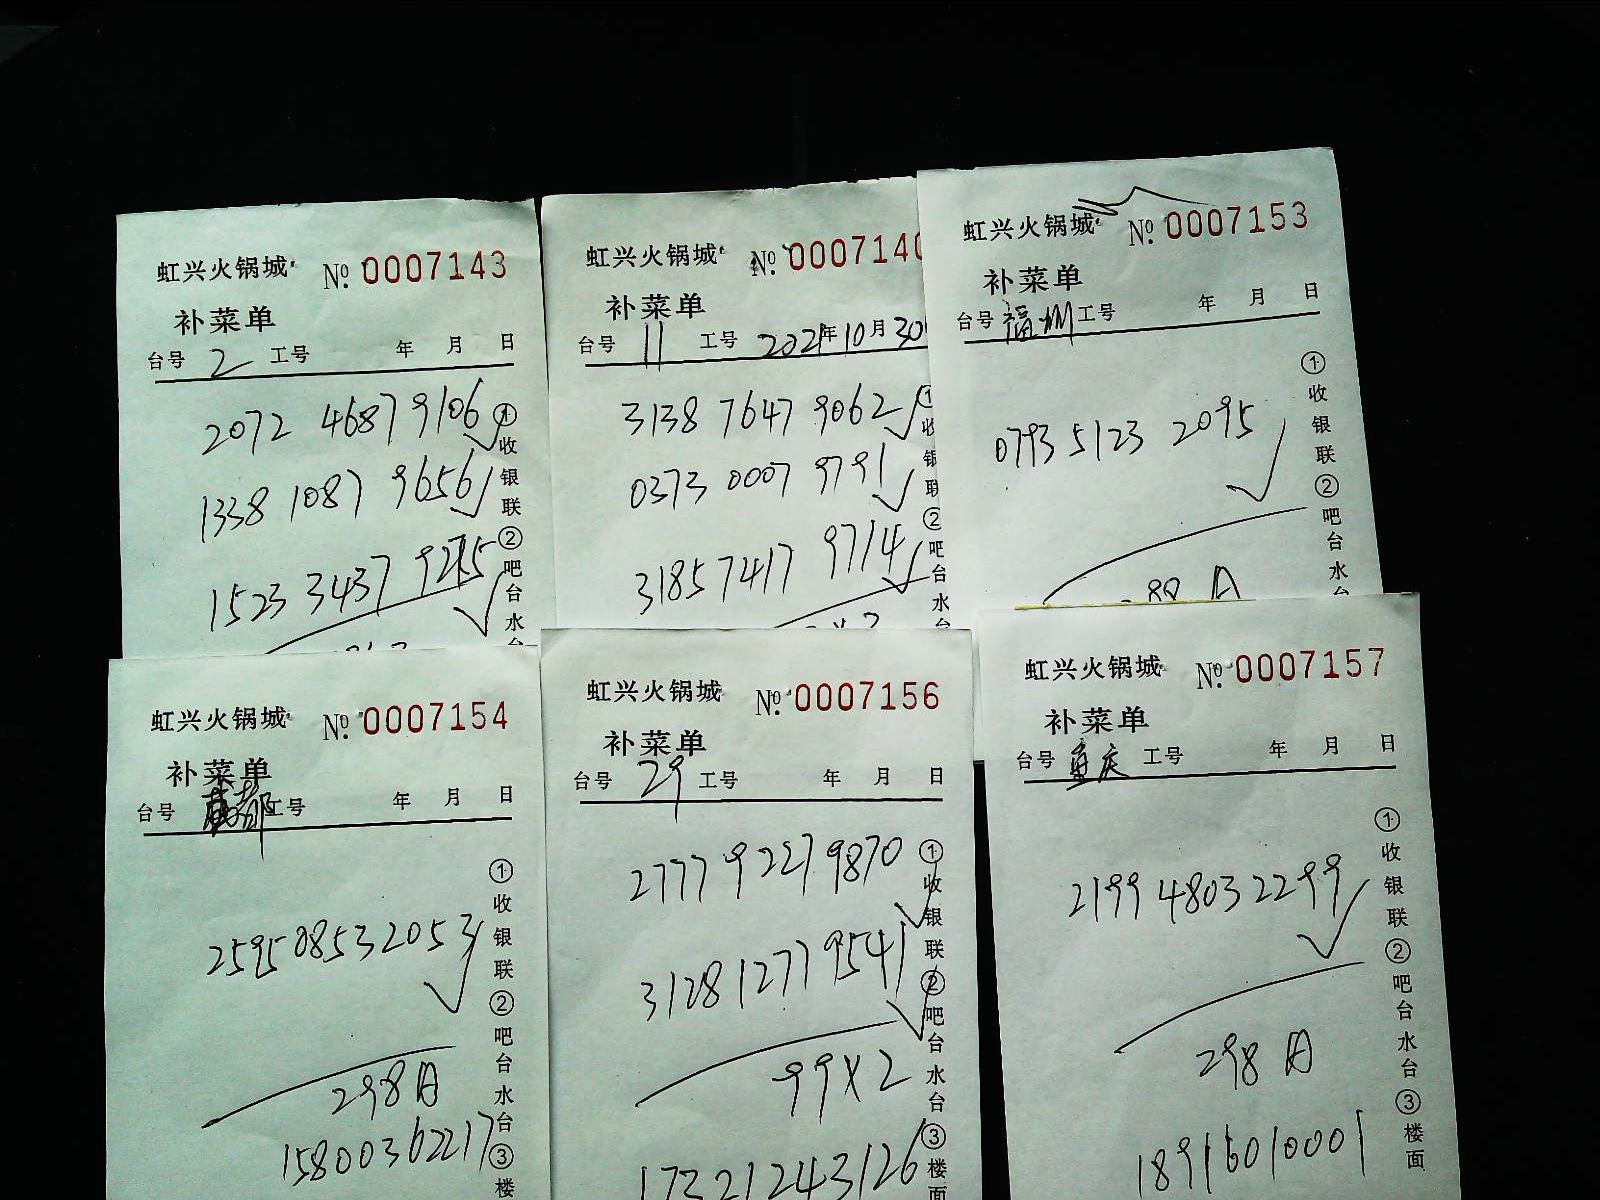 虹兴火锅城 №: 0007143
补菜单
台号 2 工号 年 月 日
2072 4687 9106
1338 1087 9656
1523 3437 9275
①收银联②吧台水台
虹兴火锅城 №: 0007140
补菜单
台号 11 工号 2021年10月30
3138 7647 9062
0373 0007 9791
3185 7417 9714
①收银联②吧台水台
虹兴火锅城 №: 0007153
补菜单
台号 福州 工号 年 月 日
0793 5123 2095
①收银联②吧台水台
虹兴火锅城 №: 0007154
补菜单
台号 成都 工号 年 月 日
2595 0853 2053
298A
15800362217
①收银联②吧台水台③楼
虹兴火锅城 №: 0007156
补菜单
台号 29 工号 年 月 日
2777 9227 9870
3128 1277 9541
99X2
17321243126
①收银联②吧台水台③楼面
虹兴火锅城 №: 0007157
补菜单
台号 重庆 工号 年 月 日
2199 4803 2299
298 A
18916010001
①收银联②吧台水台③楼面